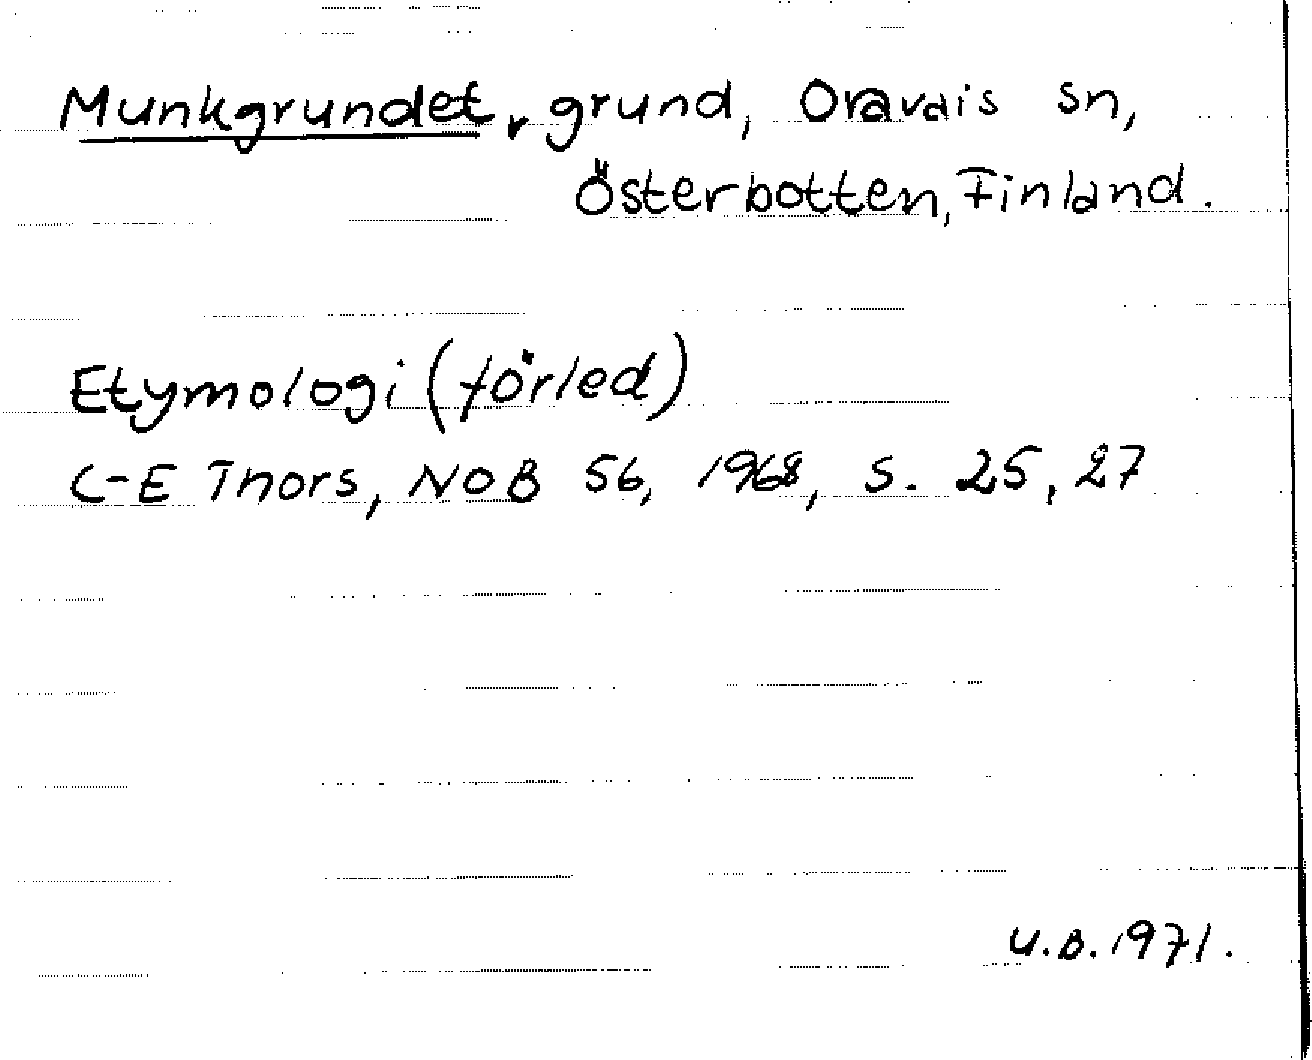 Munkgrundet, grund, Oravais sn,
Österbotten, Finland.
Etymologi (förled)
C-E Thors, NOB 56, 1968, s. 25, 27
U.B. 1971.